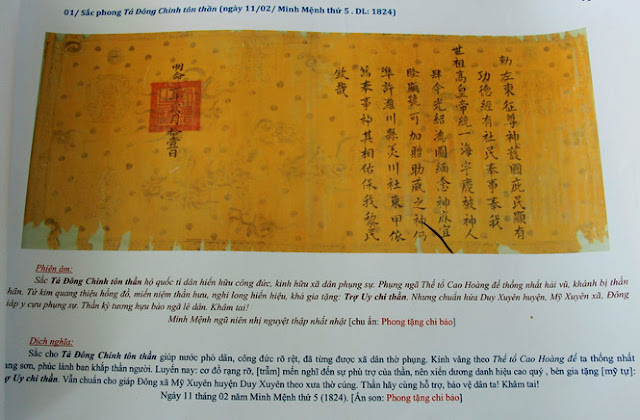 01/ Sắc phong Tả Đông Chinh tôn thần (ngày 11/02/ Minh Mệnh thứ 5 . DL: 1824)
勅左東征尊神護國庇民顯有
功德經有社民奉事奉我
世祖高皇帝統一海宇慶被神人
肆今光紹鴻圖緬念神庥宜
隆顯號可加贈助威之神仍
準許濰川縣美川社東甲依
舊奉事神其相佑保我黎民
欽哉
明命五年貳月拾壹日
Phiên âm:
Sắc Tả Đông Chinh tôn thần hộ quốc tí dân hiển hữu công đức, kinh hữu xã dân phụng sự. Phụng ngã Thế tổ Cao Hoàng đế thống nhất hải vũ, khánh bị thần
hân. Tứ kim quang thiệu hồng đồ, miến niệm thần hưu, nghi long hiển hiệu, khả gia tặng: Trợ Uy chi thần. Nhưng chuẩn hứa Duy Xuyên huyện, Mỹ Xuyên xã, Đông
iáp y cựu phụng sự. Thần kỳ tương hựu bảo ngã lê dân. Khâm tai!
Minh Mệnh ngũ niên nhị nguyệt thập nhất nhật [chu ấn: Phong tặng chi bảo]
Dịch nghĩa:
Sắc cho Tả Đông Chinh tôn thần giúp nước phò dân, công đức rõ rệt, đã từng được xã dân thờ phụng. Kính vâng theo Thế tổ Cao Hoàng đế ta thống nhất
ang sơn, phúc lành ban khắp thần người. Luyến nay: cơ đồ rạng rỡ, [trẫm] mến nghĩ đến sự phù trợ của thần, nên xiển dương danh hiệu cao quý , bèn gia tặng [mỹ tự]:
ợ Uy chi thần. Vẫn chuẩn cho giáp Đông xã Mỹ Xuyên huyện Duy Xuyên theo xưa thờ cúng. Thần hãy cùng hỗ trợ, bảo vệ dân ta! Khâm tai!
Ngày 11 tháng 02 năm Minh Mệnh thứ 5 (1824). [Ấn son: Phong tặng chi bảo]